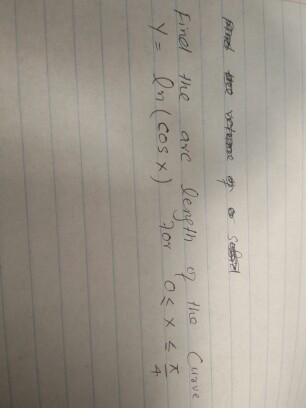 Find the volume of a solid
Find the arc length of the Curve
y = ln(cos x) for 0 ≤ x ≤ π/4